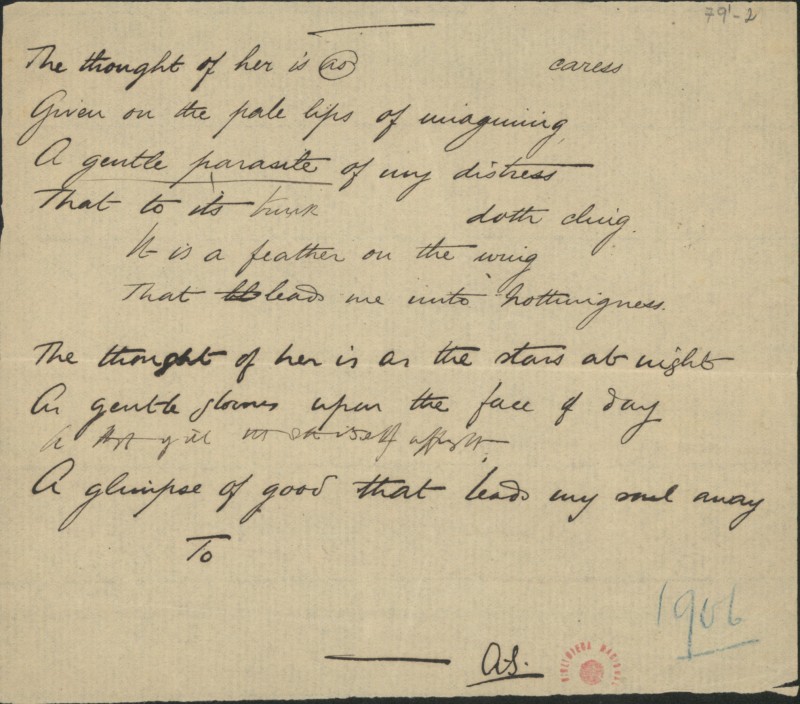 79¹-2
The thought of her is as caress
Given on the pale lips of imagining,
A gentle parasite of my distress
That to its trunk doth cling.
It is a feather on the wing
That leads me unto nothingness.
The thought of her is as the stars at night
As gentle glooms upon the face of day
A itself
A glimpse of good that leads my soul away
To
1906
A.S.
BIBLIOTECA NACIONAL